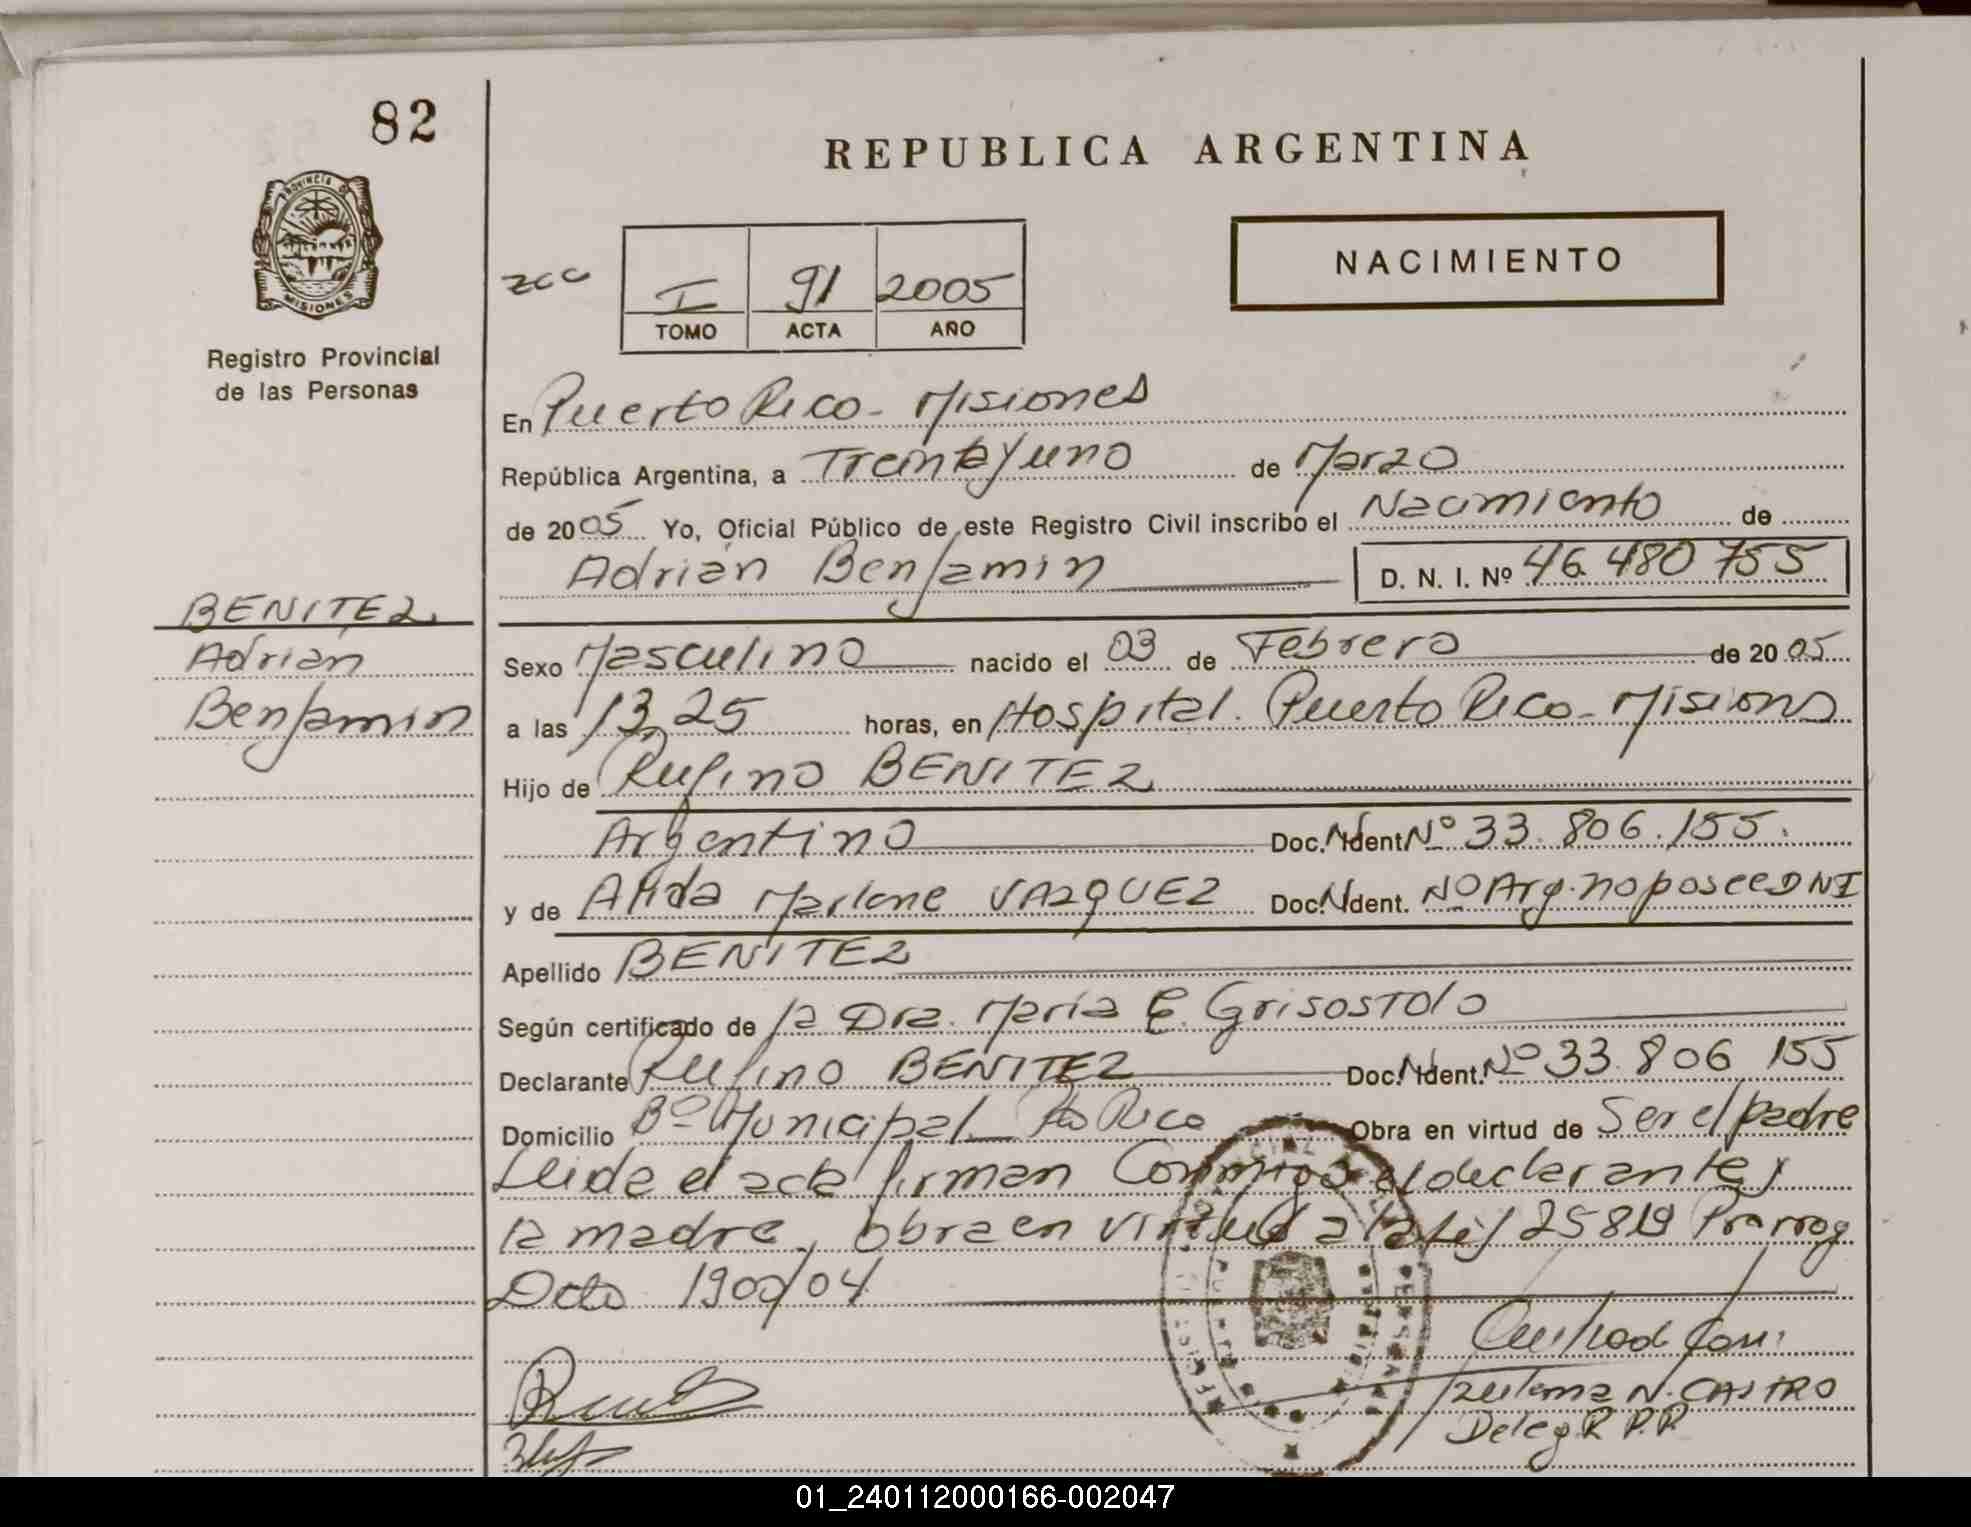 82
REPUBLICA ARGENTINA
PROVINCIA DE
MISIONES
Registro Provincial
de las Personas
zcc
I 91 2005
TOMO ACTA AÑO
NACIMIENTO
En Puerto Rico - Misiones
República Argentina, a Treinta y uno de Marzo
de 2005 Yo, Oficial Público de este Registro Civil inscribo el Nacimiento de
Adrián Benjamin D. N. I. Nº 46.480 755
BENITEZ
Adrian
Benjamin
Sexo Masculino nacido el 03 de Febrero de 2005
a las 13,25 horas, en Hospital. Puerto Rico - Misiones
Hijo de Rufino BENITEZ
Argentino Doc. Ident Nº 33.806.155.
y de Alida Marlene VAZQUEZ Doc. Ident. Nº Arg. no posee DNI
Apellido BENITEZ
Según certificado de la Dra. Maria E. Grisostolo
Declarante Rufino BENITEZ Doc. Ident. Nº 33.806 155
Domicilio Bº Municipal - Pto Rico Obra en virtud de Ser el padre
Leida el acta firman Conmigo el declarante y
la madre, obra en virtud a la Ley 25819 Prorrog
Dcto 1900/04
Zulema N. CASTRO
Deleg R.P.P.
01_240112000166-002047